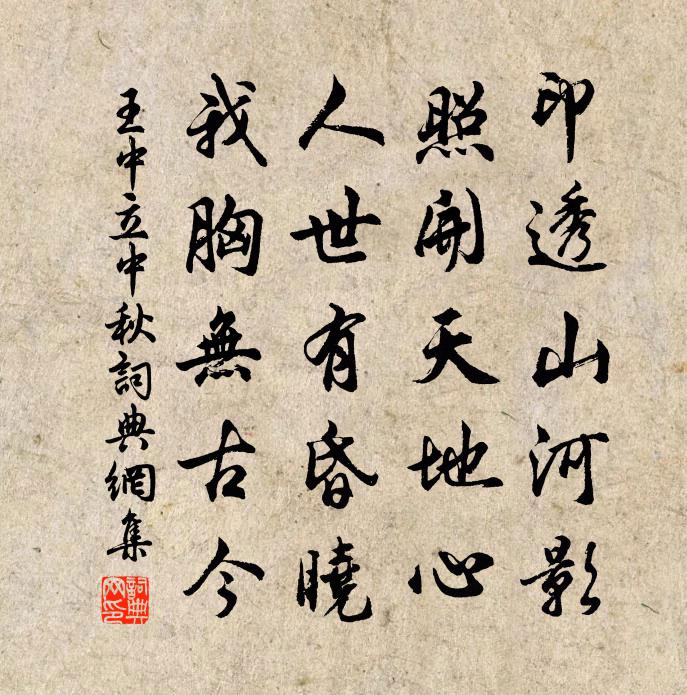 印透山河影
照開天地心
人世有昏曉
我胸無古今
王中立中秋詞典網集
詞典網印